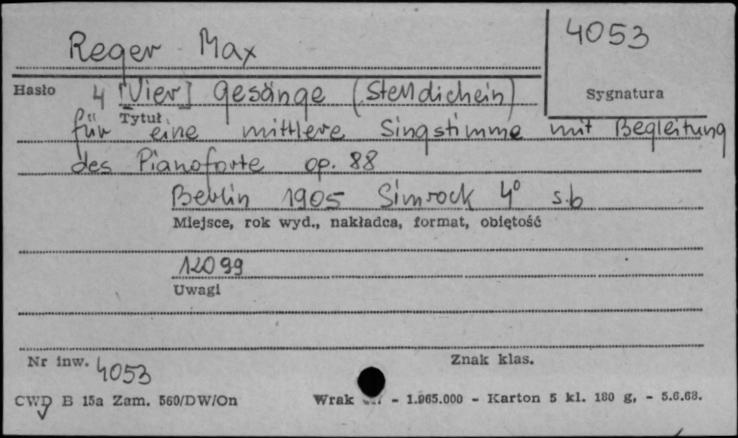 Reger Max
4053
Hasło
4 [Vier] Gesänge (Stelldichein)
Sygnatura
Tytuł
für eine mittlere Singstimme mit Begleitung
des Pianoforte op. 88
Berlin 1905 Simrock 4° s.b
Miejsce, rok wyd., nakładca, format, obiętość
12099
Uwagi
Nr inw. 4053
Znak klas.
CWD B 15a Zam. 560/DW/On Wrak - 1.965.000 - Karton 5 kl. 180 g, - 5.6.68.